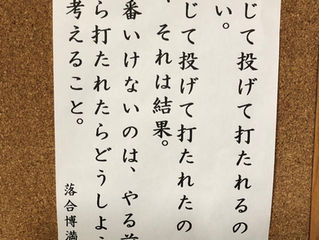 じて投げて打たれるの
い。
じて投げて打たれたの
それは結果。
番いけないのは、やる前
ら打たれたらどうしよう
考えること。
落合博満